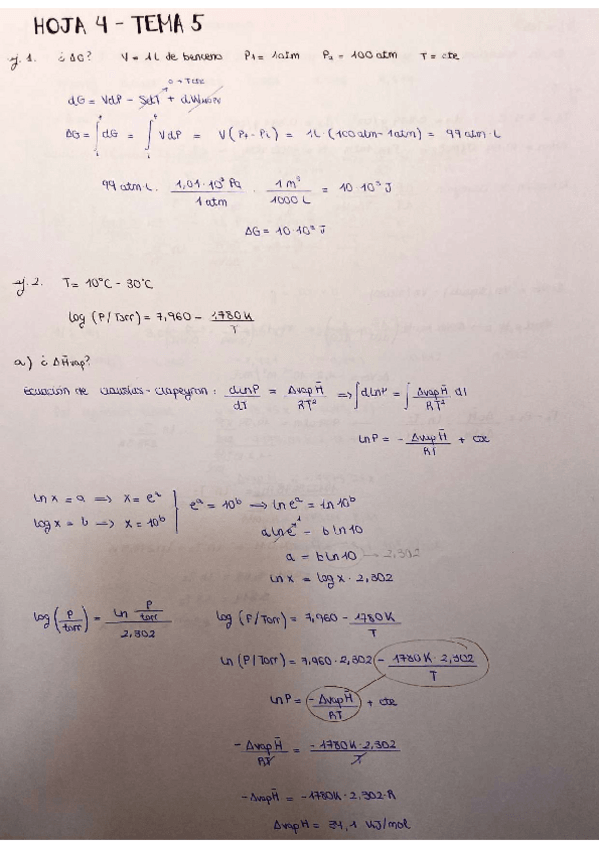 HOJA 4 - TEMA 5
ej. 1. ¿ΔG? V = 1L de benceno P1 = 1atm P2 = 100 atm T = cte
0 → T cte
dG = VdP - SdT + dWNOPV
ΔG = ∫dG = ∫VdP = V(Pf - Pi) = 1L · (100atm - 1atm) = 99 atm·L
99 atm·L · 1,01·10⁵ Pa / 1 atm · 1 m³ / 1000 L = 10·10³ J
ΔG = 10·10³ J
ej. 2. T = 10°C - 30°C
log (P/Torr) = 7,960 - 1780K / T
a) ¿ΔH̄vap?
Ecuación de Clausius-Clapeyron: dlnP / dT = ΔvapH̄ / RT² ⇒ ∫dlnP = ∫ ΔvapH̄ / RT² dT
lnP = - ΔvapH̄ / RT + cte
ln x = a ⇒ x = eᵃ
log x = b ⇒ x = 10ᵇ
eᵃ = 10ᵇ → ln eᵃ = ln 10ᵇ
a ln e¹ = b ln 10
a = b ln 10 → 2,302
ln x = log x · 2,302
log(P/torr) = ln P/torr / 2,302
log (P/Torr) = 7,960 - 1780K / T
ln (P/Torr) = 7,960·2,302 - 1780K·2,302 / T
lnP = - ΔvapH̄ / RT + cte
- ΔvapH̄ / RT = - 1780K·2,302 / T
- ΔvapH̄ = - 1780K·2,302·R
ΔvapH = 34,1 KJ/mol